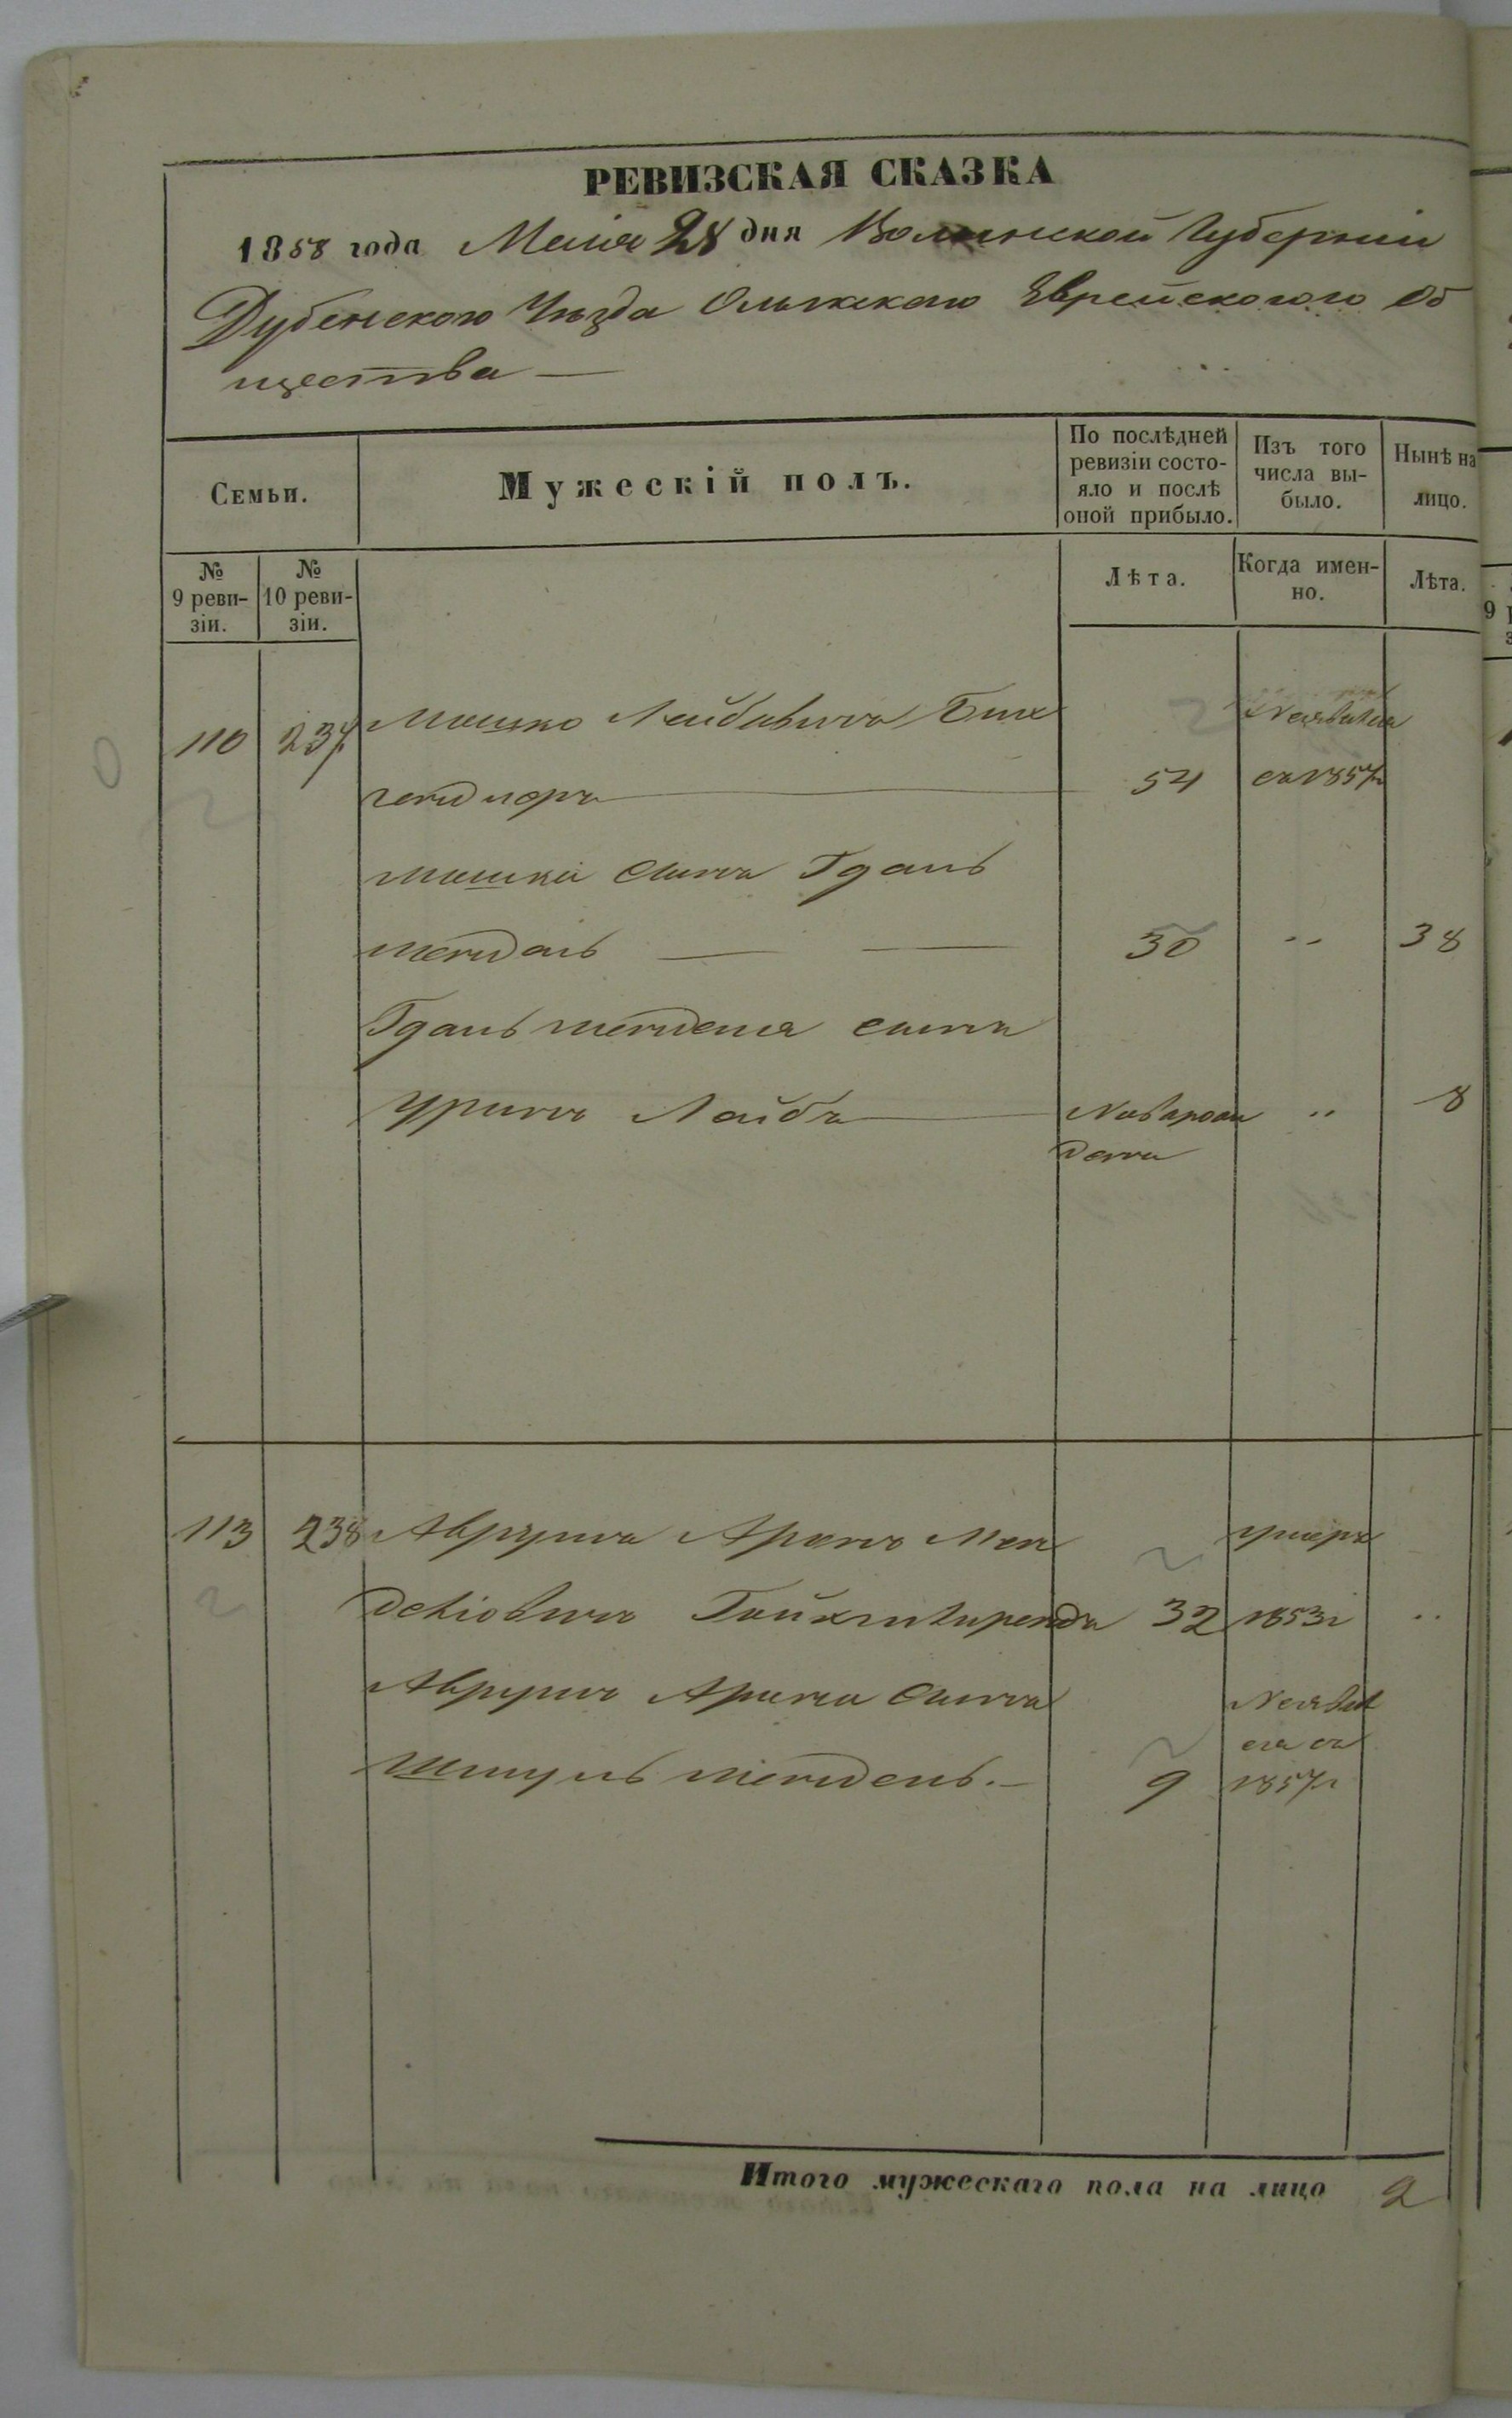 РЕВИЗСКАЯ СКАЗКА
1858 года Маія 28 дня Волынской Губерніи
Дубенского Уѣзда Олыкского Еврейского Об
щества —
Семьи.
Мужескій полъ.
По послѣдней
ревизіи состо-
яло и послѣ
оной прибыло.
Изъ того
числа вы-
было.
Нынѣ на
лицо.
№
9 реви-
зіи.
№
10 реви-
зіи.
Лѣта.
Когда имен-
но.
Лѣта.
110 237 Мошко Лейбовичъ Бих Неявился
54 съ 1857г
Мошка сынъ
Мендель 30 " 38
Менделя сынъ
Лейбъ Новорож " 8
денъ
113 238 Аврумъ Аронъ Мен умеръ
деліовичъ 32 1853г "
Аврумъ Арона сынъ Неявил
Шмуль Мендель. — 9 ся съ
1857г
Итого мужескаго пола на лицо 2